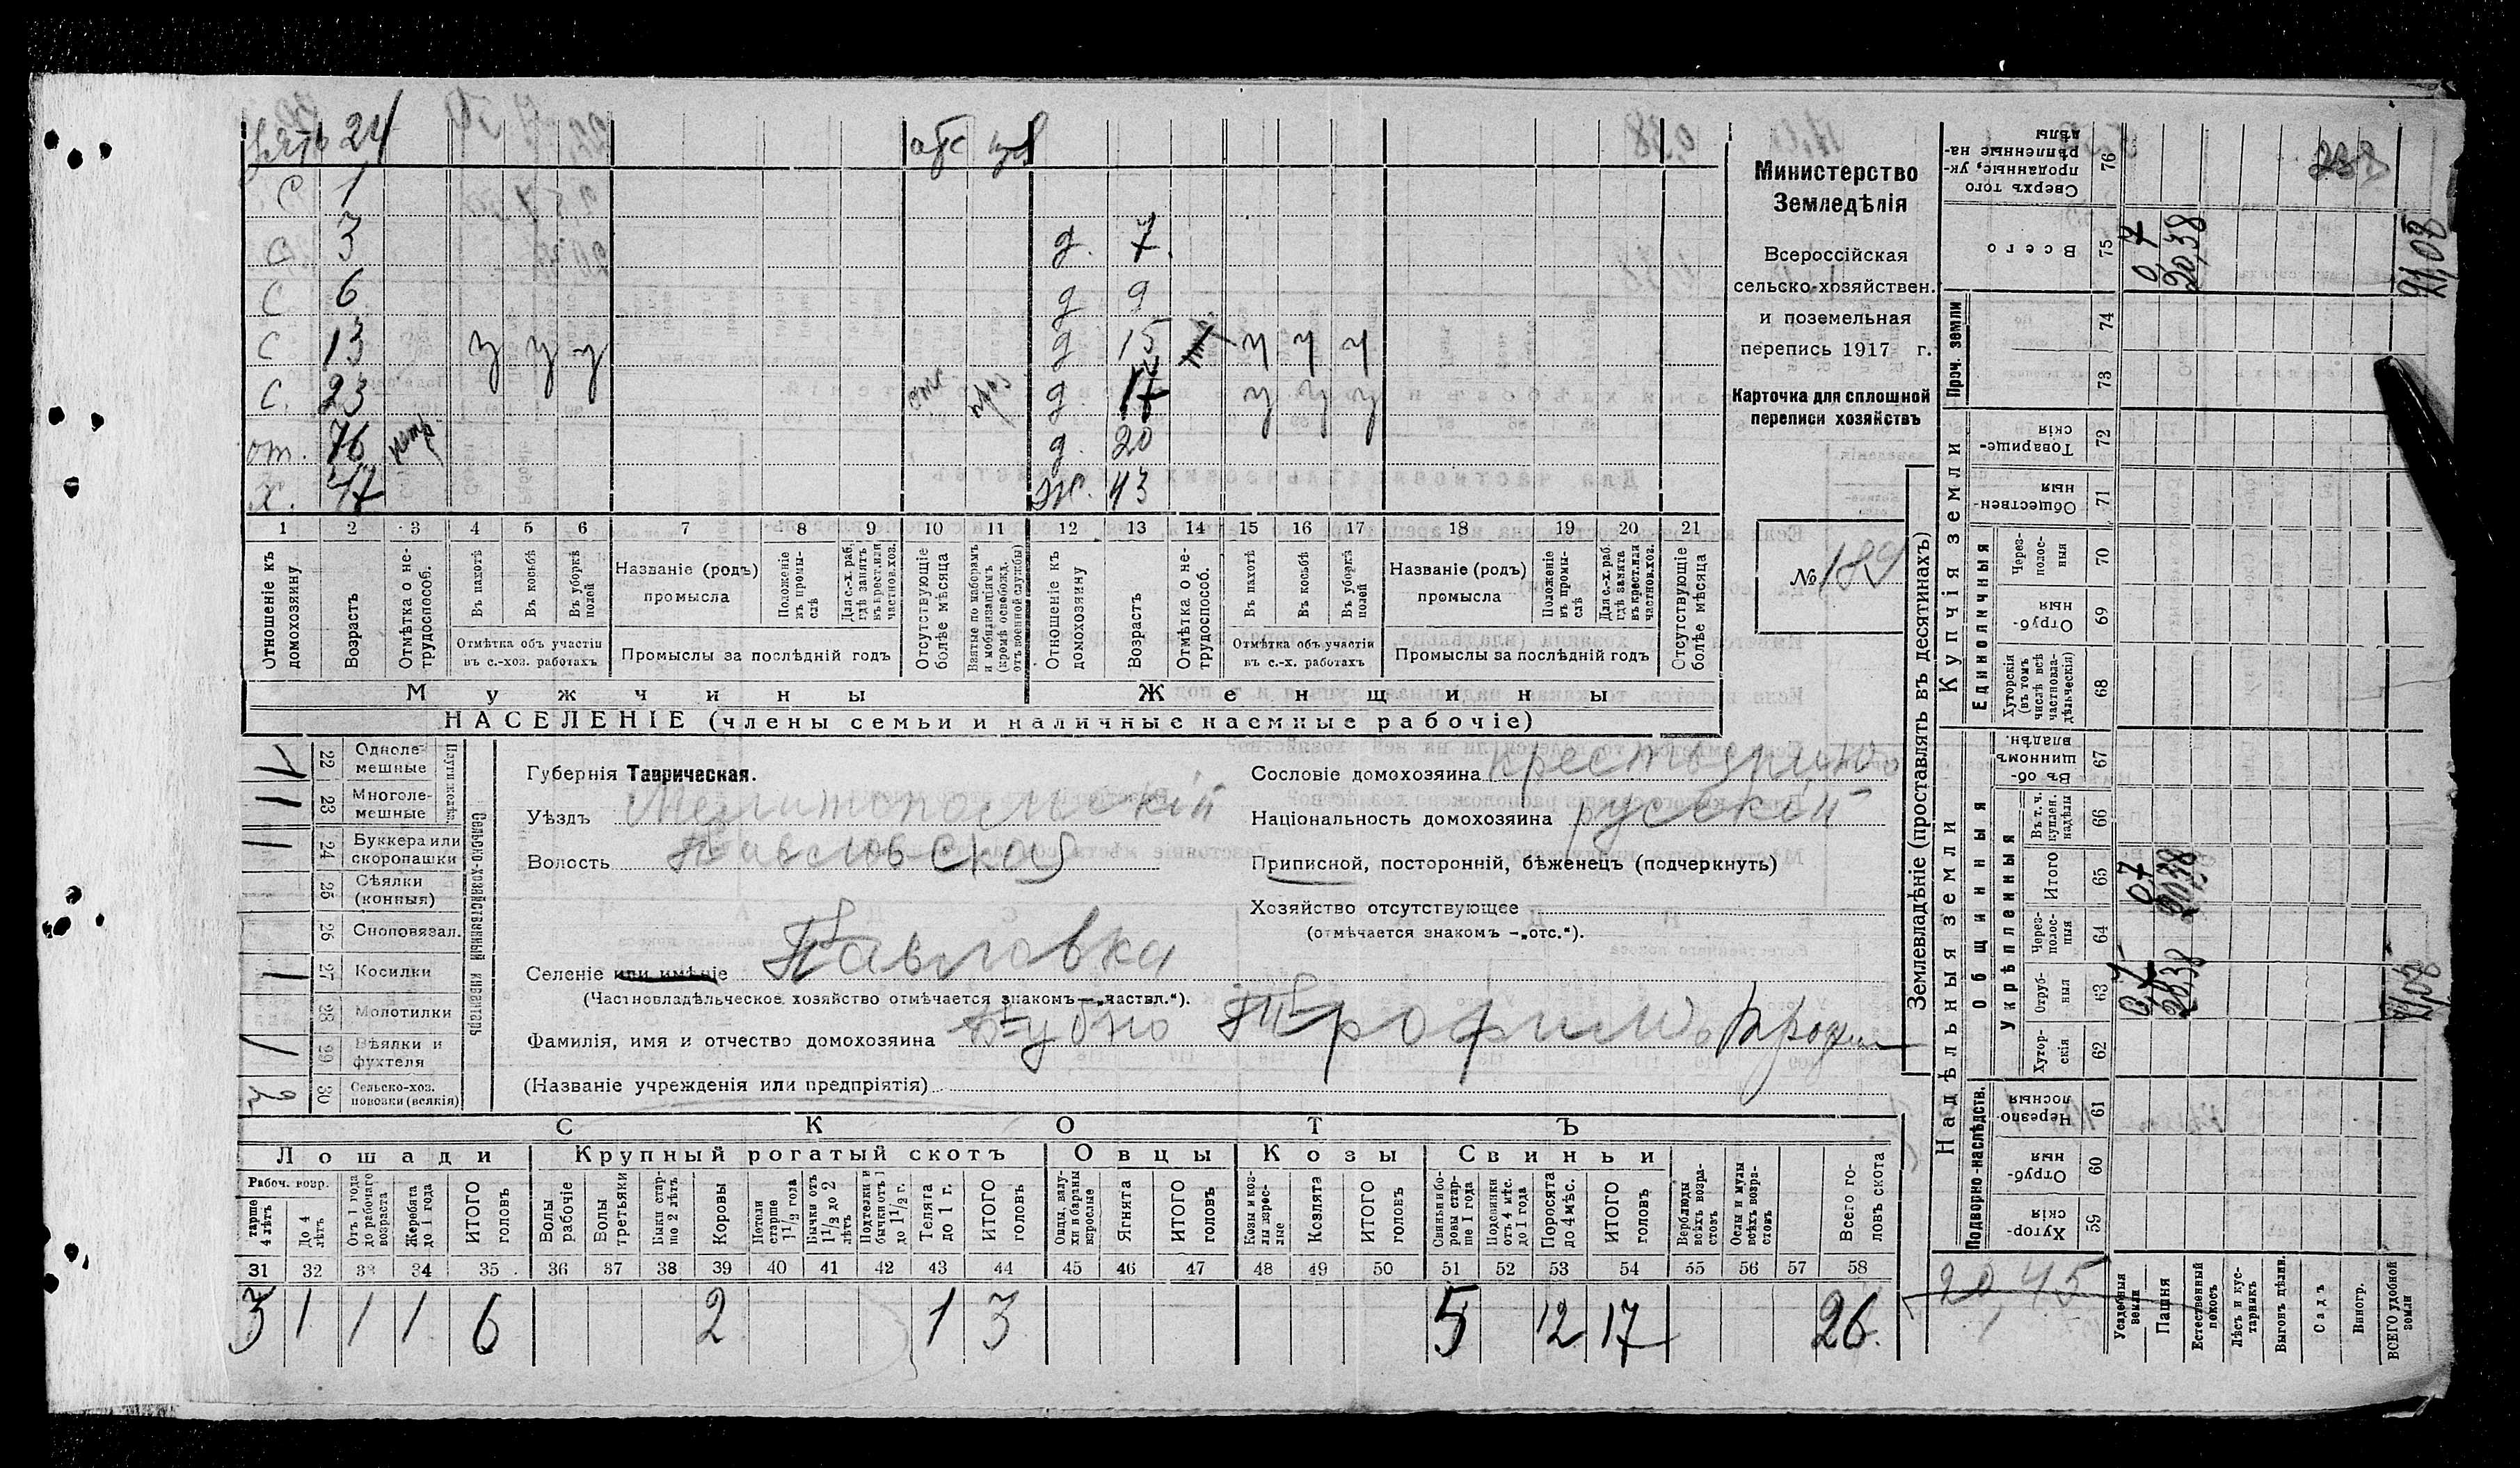 зять 24 отс
С 1
С 3 д. 7.
С 6 д 9
С 13 у у у д 15 ч ч ч
С. 23 отс приз д. 17 у у у
от. 76 нетр. д. 20
Х. 47 Ж. 43
1 2 3 4 5 6 7 8 9 10 11 12 13 14 15 16 17 18 19 20 21
Отношеніе къ домохозяину.
Возрастъ
Отмѣтка о нетрудоспособ.
Въ пахотѣ
Въ косьбѣ
Въ уборкѣ полей
Отмѣтка объ участіи въ с.-хоз. работахъ
Названіе (родъ) промысла
Положеніе въ промыслѣ
Для с.-х. раб. гдѣ занятъ въ крест. или частнов. хоз.
Промыслы за послѣдній годъ
Отсутствующіе болѣе мѣсяца
Взятые по наборамъ и мобилизаціямъ (кромѣ освобожд. отъ военной службы)
Отношеніе къ домохозяину
Возрастъ
Отмѣтка о нетрудоспособ.
Въ пахотѣ
Въ косьбѣ
Въ уборкѣ полей
Отмѣтка объ участіи въ с.-х. работахъ
Названіе (родъ) промысла
Положеніе въ промыслѣ
Для с.-х. раб. гдѣ занята въ крест. или частнов. хоз.
Промыслы за послѣдній годъ
Отсутствующіе болѣе мѣсяца
Мужчины Женщины
НАСЕЛЕНІЕ (члены семьи и наличные наемные рабочіе)
Министерство
Земледѣлія
Всероссійская
сельско-хозяйствен.
и поземельная
перепись 1917 г.
Карточка для сплошной
переписи хозяйствъ
№ 189
Сельско-хозяйственный инвентарь
22 Одноле-мешные
23 Многоле-мешные
24 Буккера или скоропашки
25 Сѣялки (конныя)
26 Сноповязал.
27 Косилки
28 Молотилки
29 Вѣялки и фухтеля
30 Сельско-хоз. повозки (всякія)
Губернія Таврическая.
Уѣздъ Мелитопольскій
Волость Павловской
Селеніе или имѣніе Павловка
(Частновладѣльческое хозяйство отмѣчается знакомъ—„частвл.“).
Фамилія, имя и отчество домохозяина Бубно Трофимъ
(Названіе учрежденія или предпріятія)
Сословіе домохозяина крестьянинъ
Національность домохозяина русскій
Приписной, посторонній, бѣженецъ (подчеркнуть)
Хозяйство отсутствующее
(отмѣчается знакомъ —„отс.“).
СКОТЪ
Лошади Крупный рогатый скотъ Овцы Козы Свиньи
Рабоч. возр.
тарше 4 лѣтъ
До 4 лѣтъ
Отъ 1 года до рабочаго возраста
Жеребята до 1 года
ИТОГО головъ
Волы рабочіе
Волы третьяки
Быки старше 2 лѣтъ
Коровы
Нетели старше 1½ года
Бычки отъ 1½ до 2 лѣтъ
Подтелки и бычки отъ 1 до 1½ г.
Телята до 1 г.
ИТОГО головъ
Овцы, валухи и бараны взрослые
Ягнята
ИТОГО головъ
Козы и козлы взрослые
Козлята
ИТОГО головъ
Свиньи и боровы старше 1 года
Подсвинки отъ 4 мѣс. до 1 года
Поросята до 4 мѣс.
ИТОГО головъ
Верблюды всѣхъ возрастовъ
Ослы и мулы всѣхъ возрастовъ
Всего головъ скота
31 32 33 34 35 36 37 38 39 40 41 42 43 44 45 46 47 48 49 50 51 52 53 54 55 56 57 58
3 1 1 1 6 2 1 3 5 12 17 26.
Землевладѣніе (проставлять въ десятинахъ)
Надѣльныя земли Купчія земли Проч. земли
Подворно-наслѣдств. Общинныя Единоличныя
Укрѣпленныя
Хуторскія 59
Отрубныя 60
Черезполосныя 61
Хуторскія 62
Отрубныя 63 0,7 20,38 21,08
Черезполосныя 64
Итого 65 0,7 20,38
Въ т. ч. куплен. надѣлы 66
Въ общинномъ владѣн. 67
Хуторскія (въ томъ числѣ всѣ частновладѣльческія) 68
Отрубныя 69
Черезполосныя 70
Общественныя 71
Товарищескія 72
73
74
Всего 75 0,7 20,38 21,08
Сверхъ того проданные, укрѣпленные надѣлы 76
20,45
Усадебныя земли
Пашня
Естественный покосъ
Лѣсъ и кустарникъ
Выгонъ цѣлин.
Садъ
Виногр.
ВСЕГО удобной земли